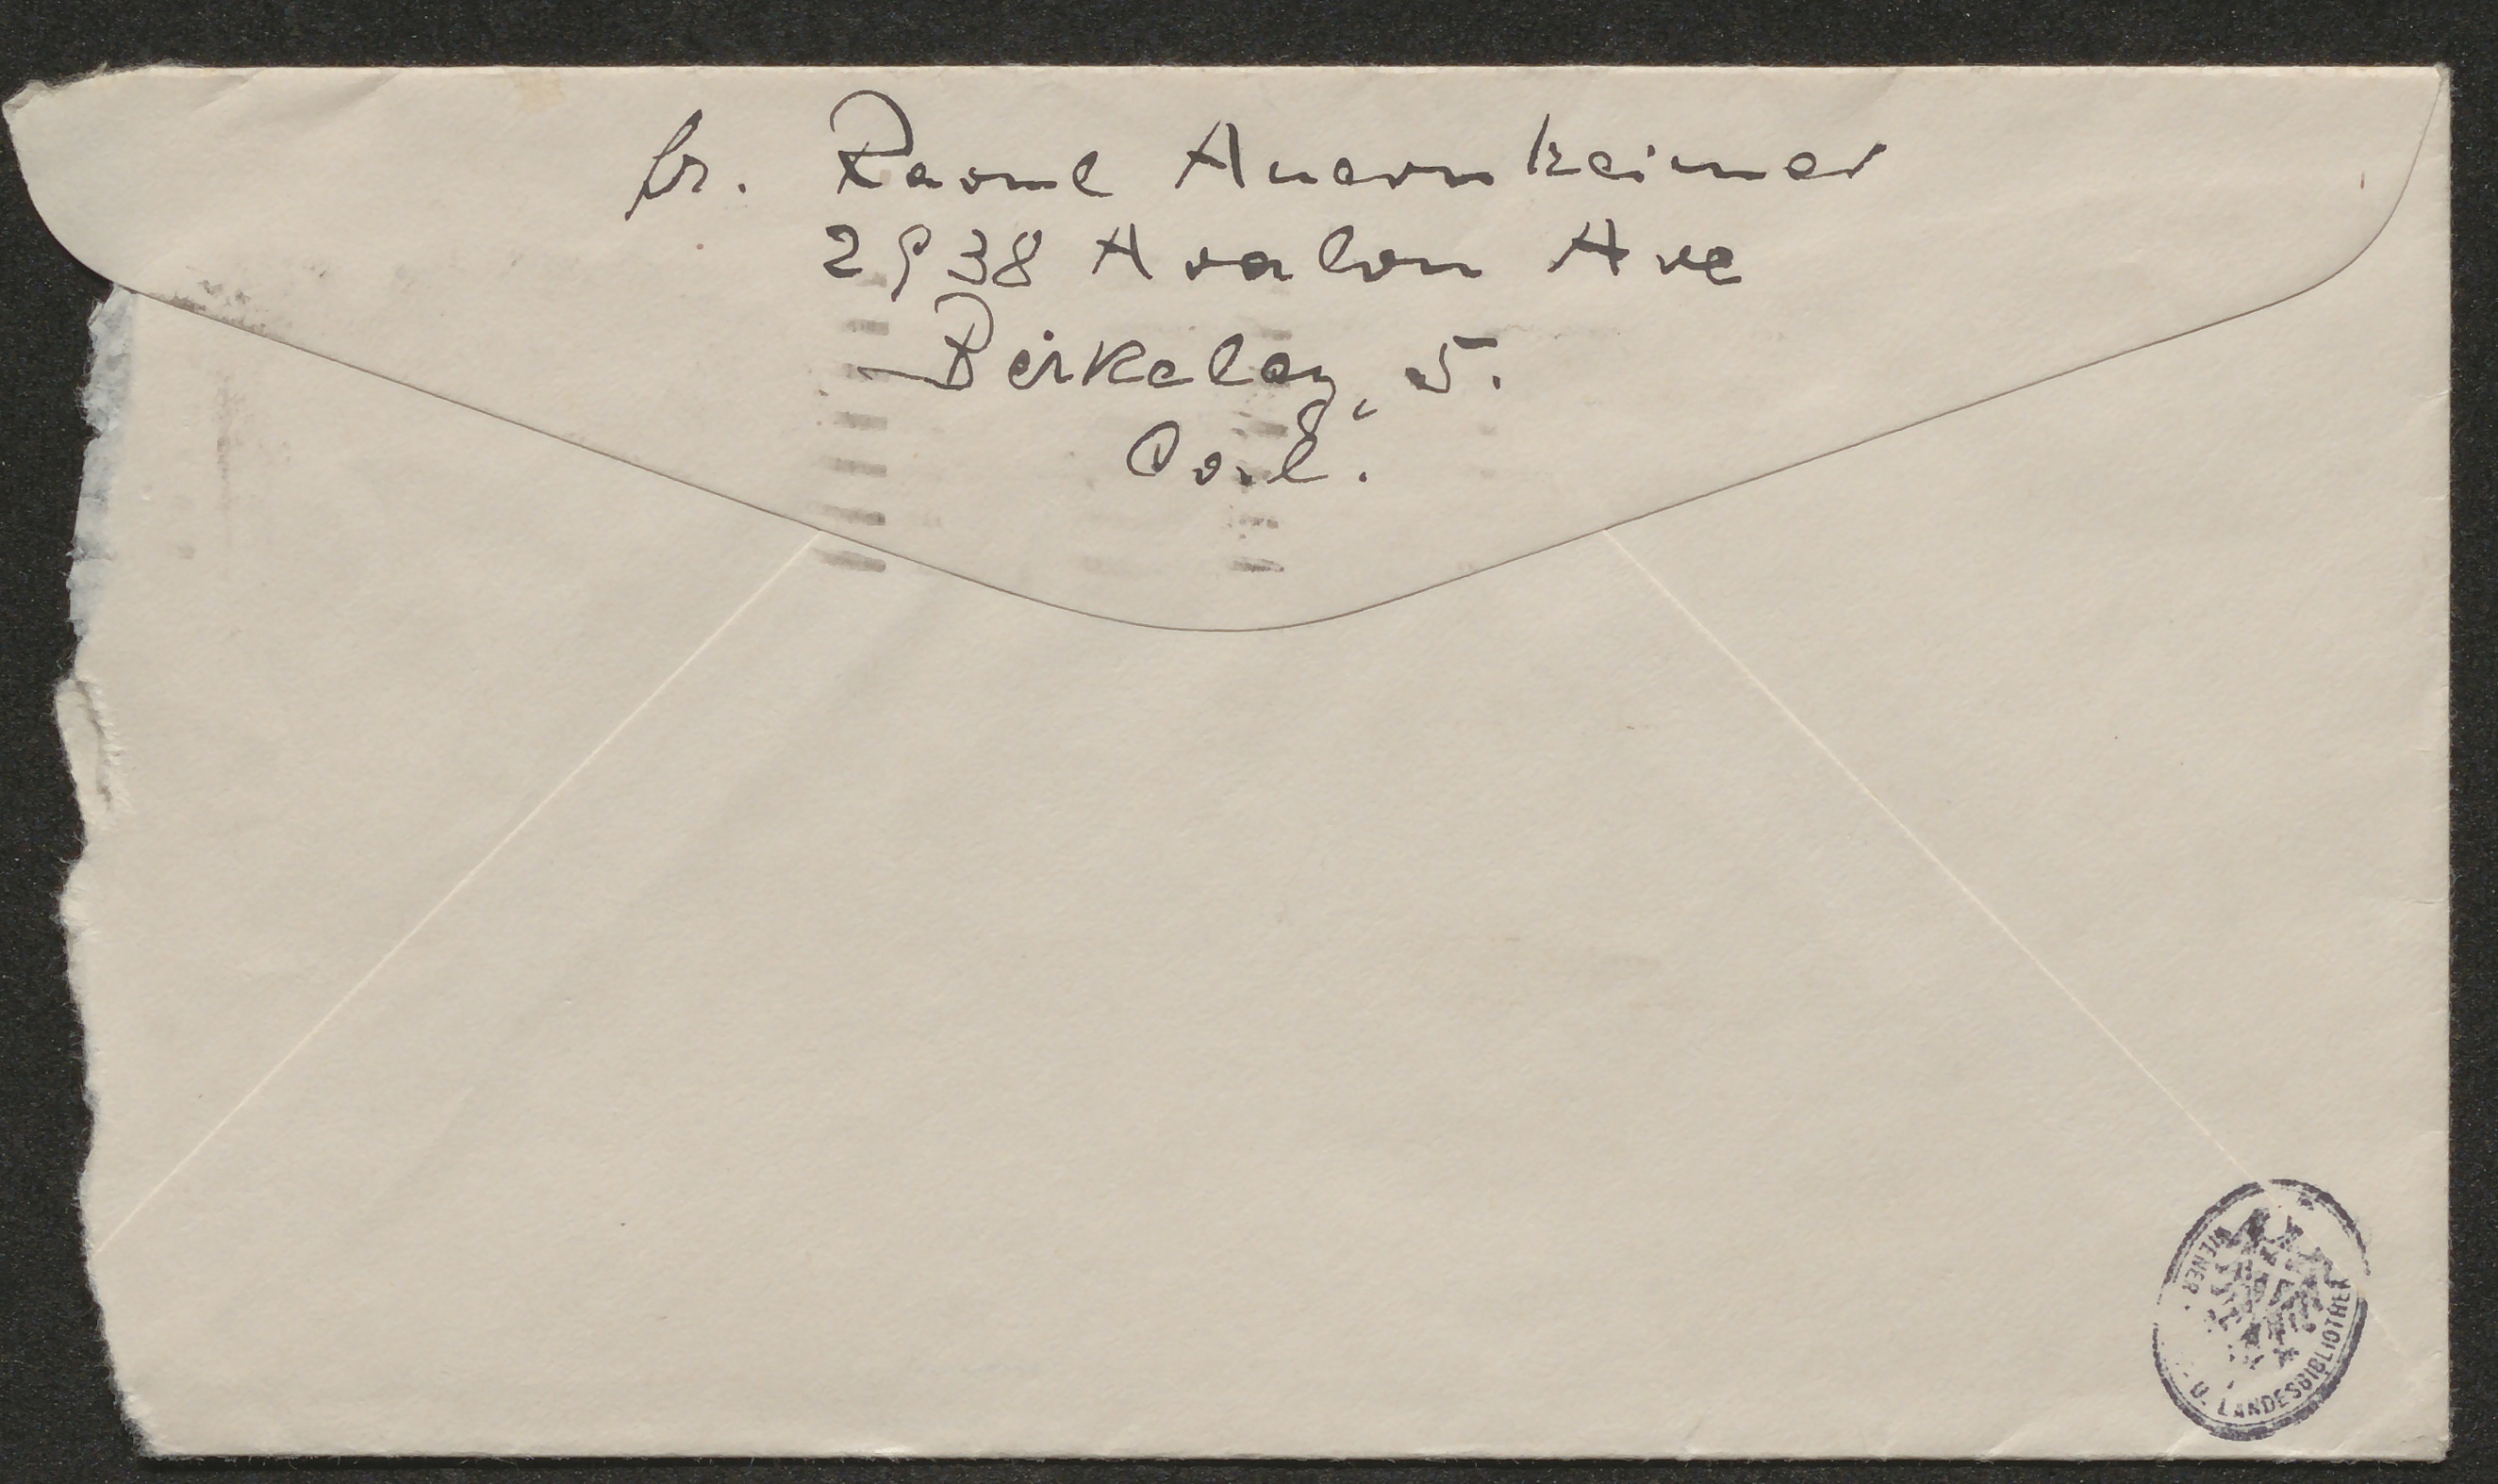 fr. Raoul Auernheimer
2938 Avalon Ave
Berkeley, 5.
Cal.
WIENER
U. LANDESBIBLIOTHEK